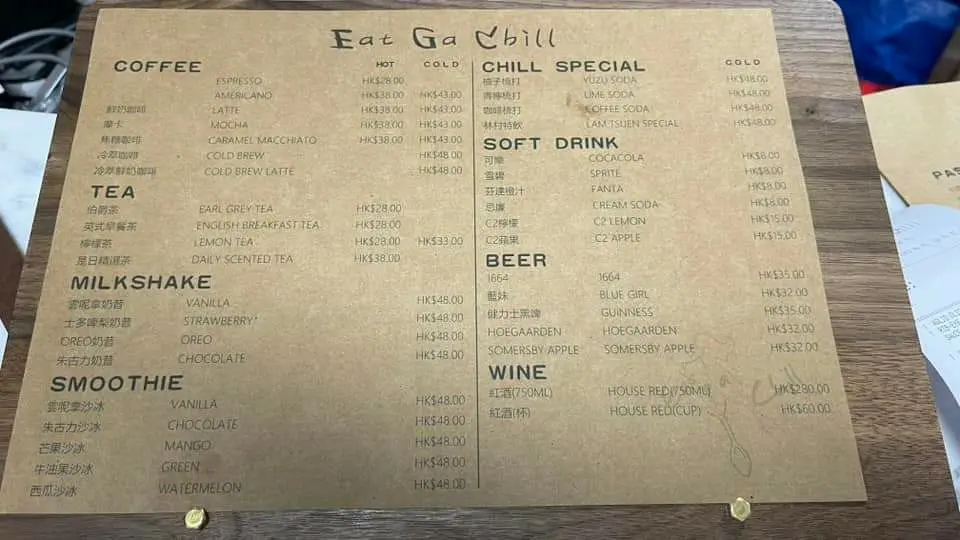 Eat Ga Chill
COFFEE HOT COLD
ESPRESSO HK$28.00
AMERICANO HK$38.00 HK$43.00
鮮奶咖啡 LATTE HK$38.00 HK$43.00
摩卡 MOCHA HK$38.00 HK$43.00
焦糖咖啡 CARAMEL MACCHIATO HK$38.00 HK$43.00
冷萃咖啡 COLD BREW HK$48.00
冷萃鮮奶咖啡 COLD BREW LATTE HK$48.00
TEA
伯爵茶 EARL GREY TEA HK$28.00
英式早餐茶 ENGLISH BREAKFAST TEA HK$28.00
檸檬茶 LEMON TEA HK$28.00 HK$33.00
是日精選茶 DAILY SCENTED TEA HK$38.00
MILKSHAKE
雲呢拿奶昔 VANILLA HK$48.00
士多啤梨奶昔 STRAWBERRY HK$48.00
OREO奶昔 OREO HK$48.00
朱古力奶昔 CHOCOLATE HK$48.00
SMOOTHIE
雲呢拿沙冰 VANILLA HK$48.00
朱古力沙冰 CHOCOLATE HK$48.00
芒果沙冰 MANGO HK$48.00
牛油果沙冰 GREEN HK$48.00
西瓜沙冰 WATERMELON HK$48.00
CHILL SPECIAL COLD
柚子梳打 YUZU SODA HK$48.00
青檸梳打 LIME SODA HK$48.00
咖啡梳打 COFFEE SODA HK$48.00
林村特飲 LAM TSUEN SPECIAL HK$48.00
SOFT DRINK
可樂 COCACOLA HK$8.00
雪碧 SPRITE HK$8.00
芬達橙汁 FANTA HK$8.00
忌廉 CREAM SODA HK$8.00
C2檸檬 C2 LEMON HK$15.00
C2蘋果 C2 APPLE HK$15.00
BEER
1664 1664 HK$35.00
藍妹 BLUE GIRL HK$32.00
健力士黑啤 GUINNESS HK$35.00
HOEGAARDEN HOEGAARDEN HK$32.00
SOMERSBY APPLE SOMERSBY APPLE HK$32.00
WINE
紅酒(750ML) HOUSE RED(750ML) HK$280.00
紅酒(杯) HOUSE RED(CUP) HK$60.00
PAS